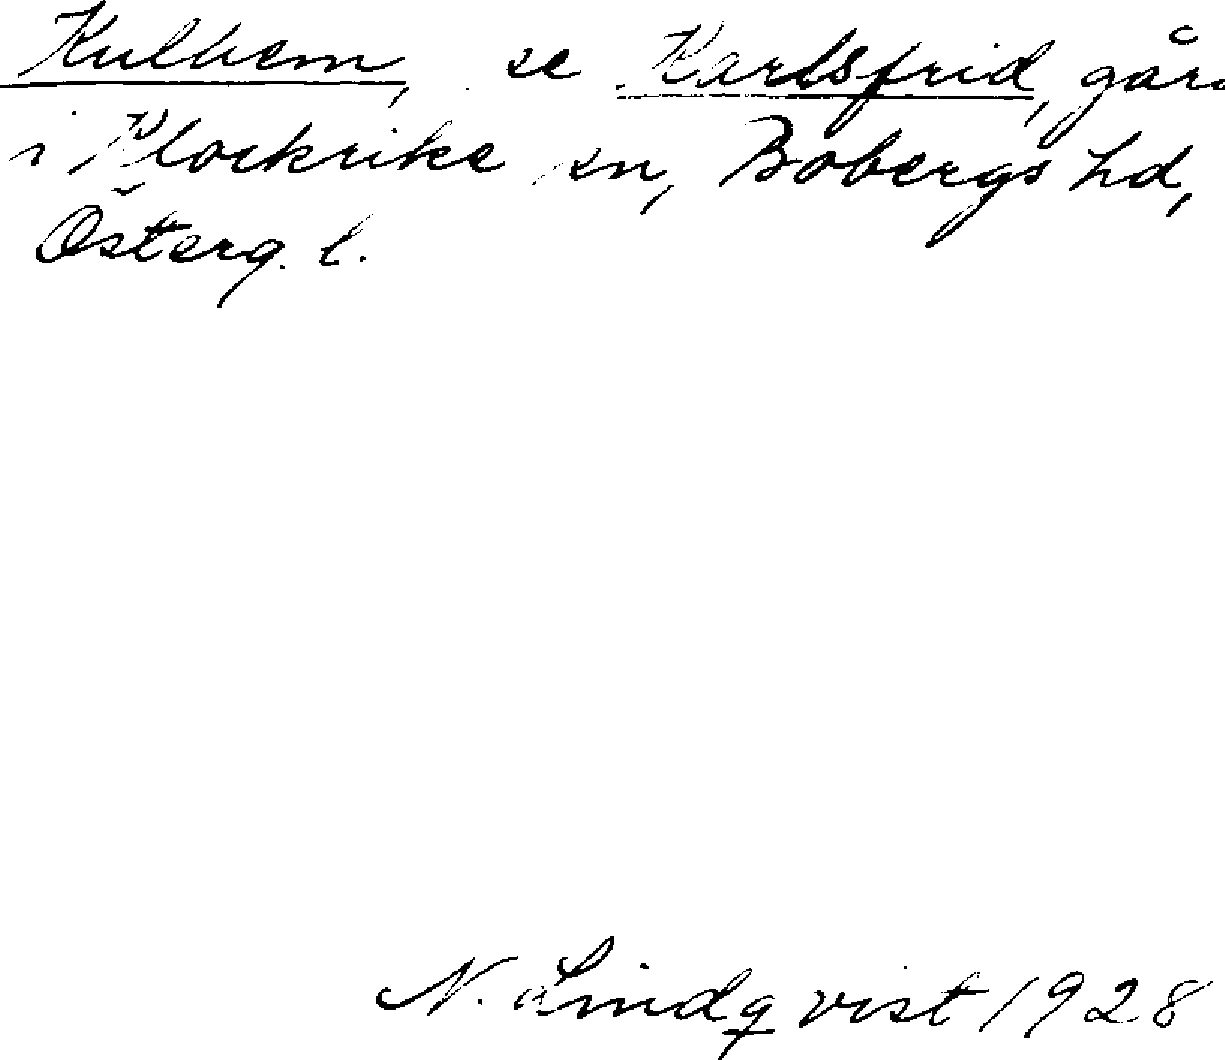 Kulhem, se Karlsfrid, går
i Klockrike sn, Bobergs hd,
Österg. l.
N. Lindqvist 1928